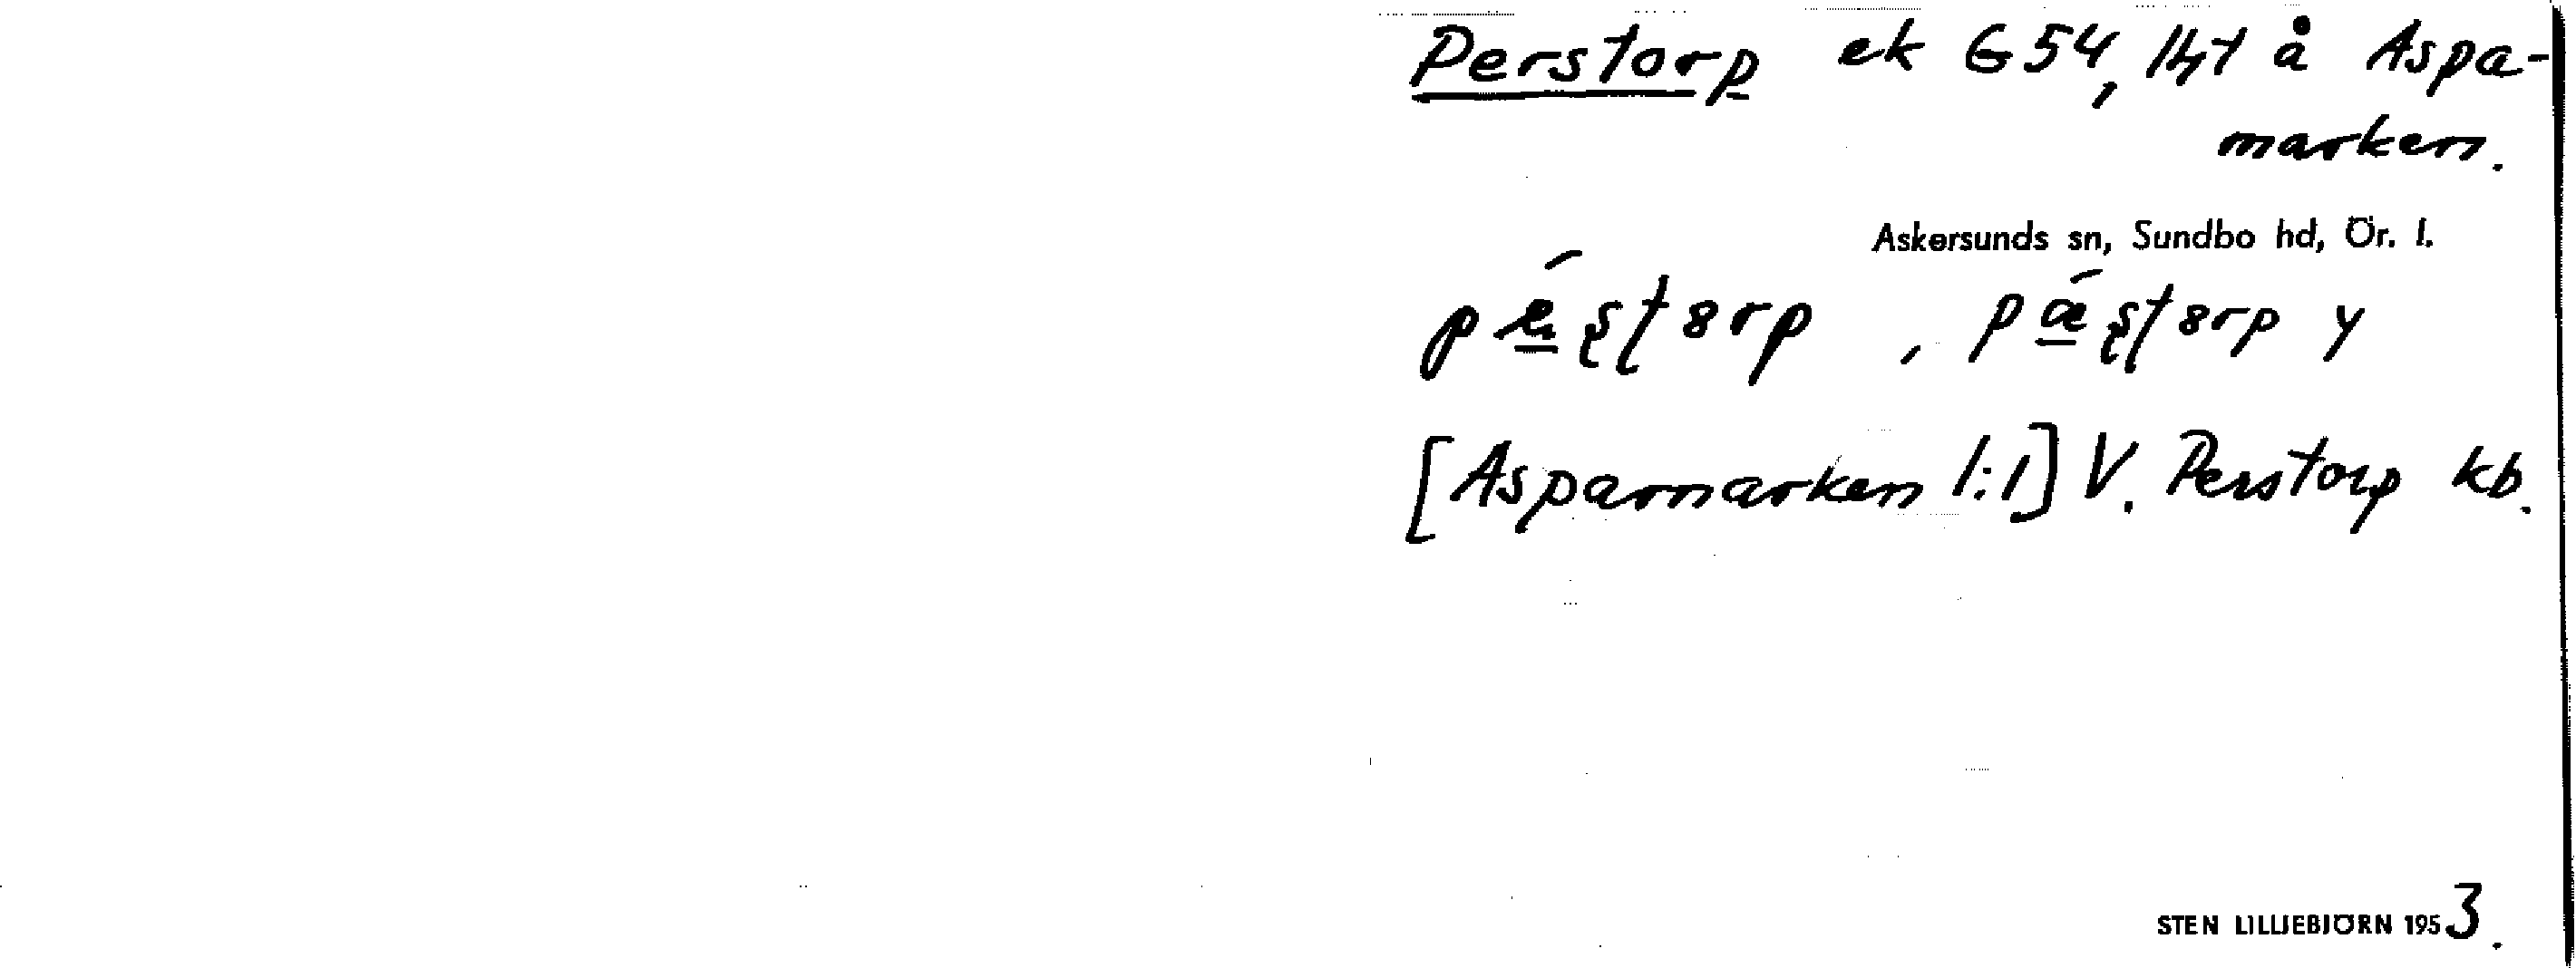 Perstorp ek G54, lht å Aspa-
marken.
Askersunds sn, Sundbo hd, Ör. l.
[Aspamarken 1:1] V. Perstorp kb.
STEN LILLIEBJÖRN 1953.